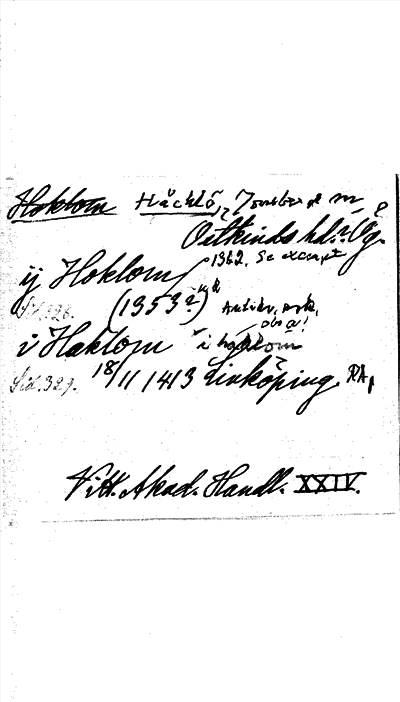 Hoklom Håcklö, Jonsberg sn
Östkinds hd. i Ög.
ij Hoklom 1362. Se excerpt
Sid. 326. (1353?)
Antikv. ark.
obs a!
i Haklom i haklom
Sid. 327. 18/11 1413 Linköping RA,
Vitt. Akad. Handl. XXIV.